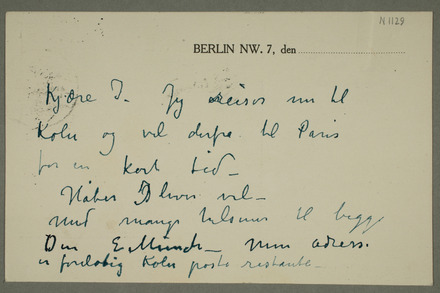 N 1129
BERLIN NW. 7, den
Kjære I. Jeg reiser nu til
Köln og vel derfra til Paris
for en kort tid_
Håber I lever vel_
med mange hilsener til begge
Din E. Munch_ min adresse
er foreløbig Köln poste restante_